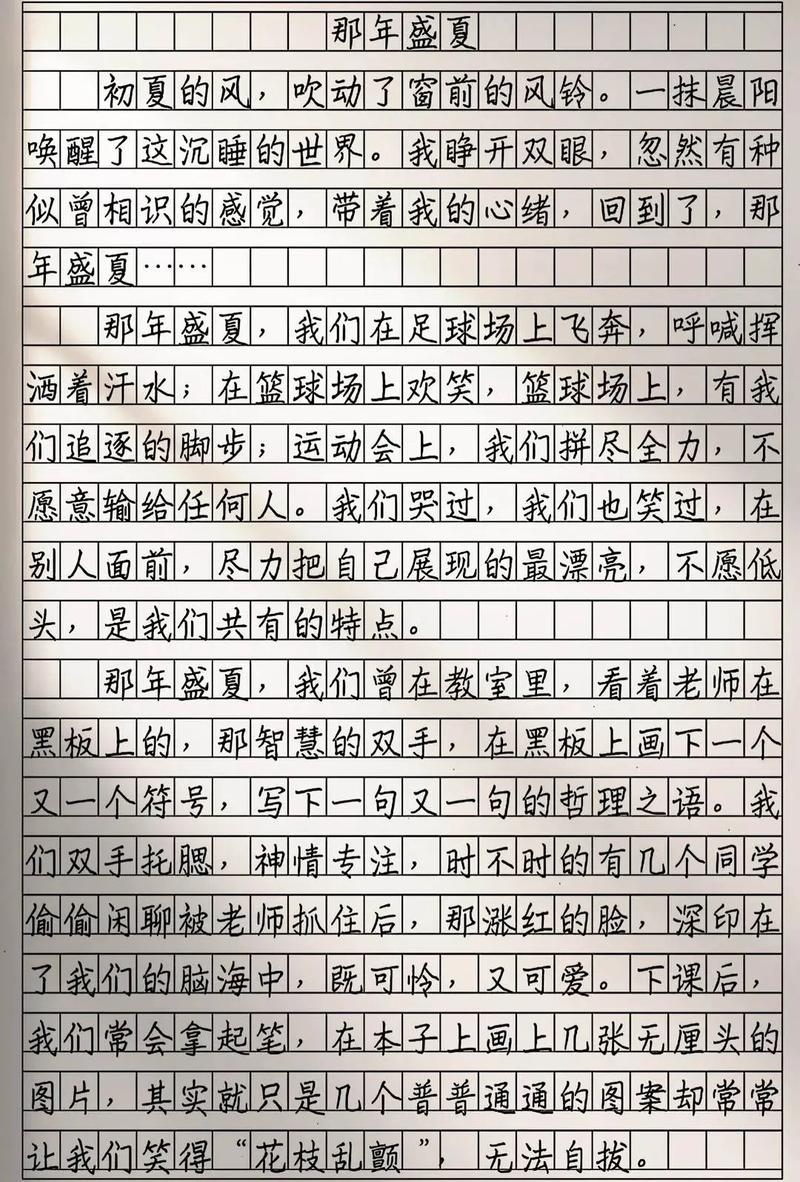 那年盛夏
初夏的风，吹动了窗前的风铃。一抹晨阳
唤醒了这沉睡的世界。我睁开双眼，忽然有种
似曾相识的感觉，带着我的心绪，回到了，那
年盛夏……
那年盛夏，我们在足球场上飞奔，呼喊挥
洒着汗水；在篮球场上欢笑，篮球场上，有我
们追逐的脚步；运动会上，我们拼尽全力，不
愿意输给任何人。我们哭过，我们也笑过，在
别人面前，尽力把自己展现的最漂亮，不愿低
头，是我们共有的特点。
那年盛夏，我们曾在教室里，看着老师在
黑板上的，那智慧的双手，在黑板上画下一个
又一个符号，写下一句又一句的哲理之语。我
们双手托腮，神情专注，时不时的有几个同学
偷偷闲聊被老师抓住后，那涨红的脸，深印在
了我们的脑海中，既可怜，又可爱。下课后，
我们常会拿起笔，在本子上画上几张无厘头的
图片，其实就只是几个普普通通的图案却常常
让我们笑得“花枝乱颤”，无法自拔。